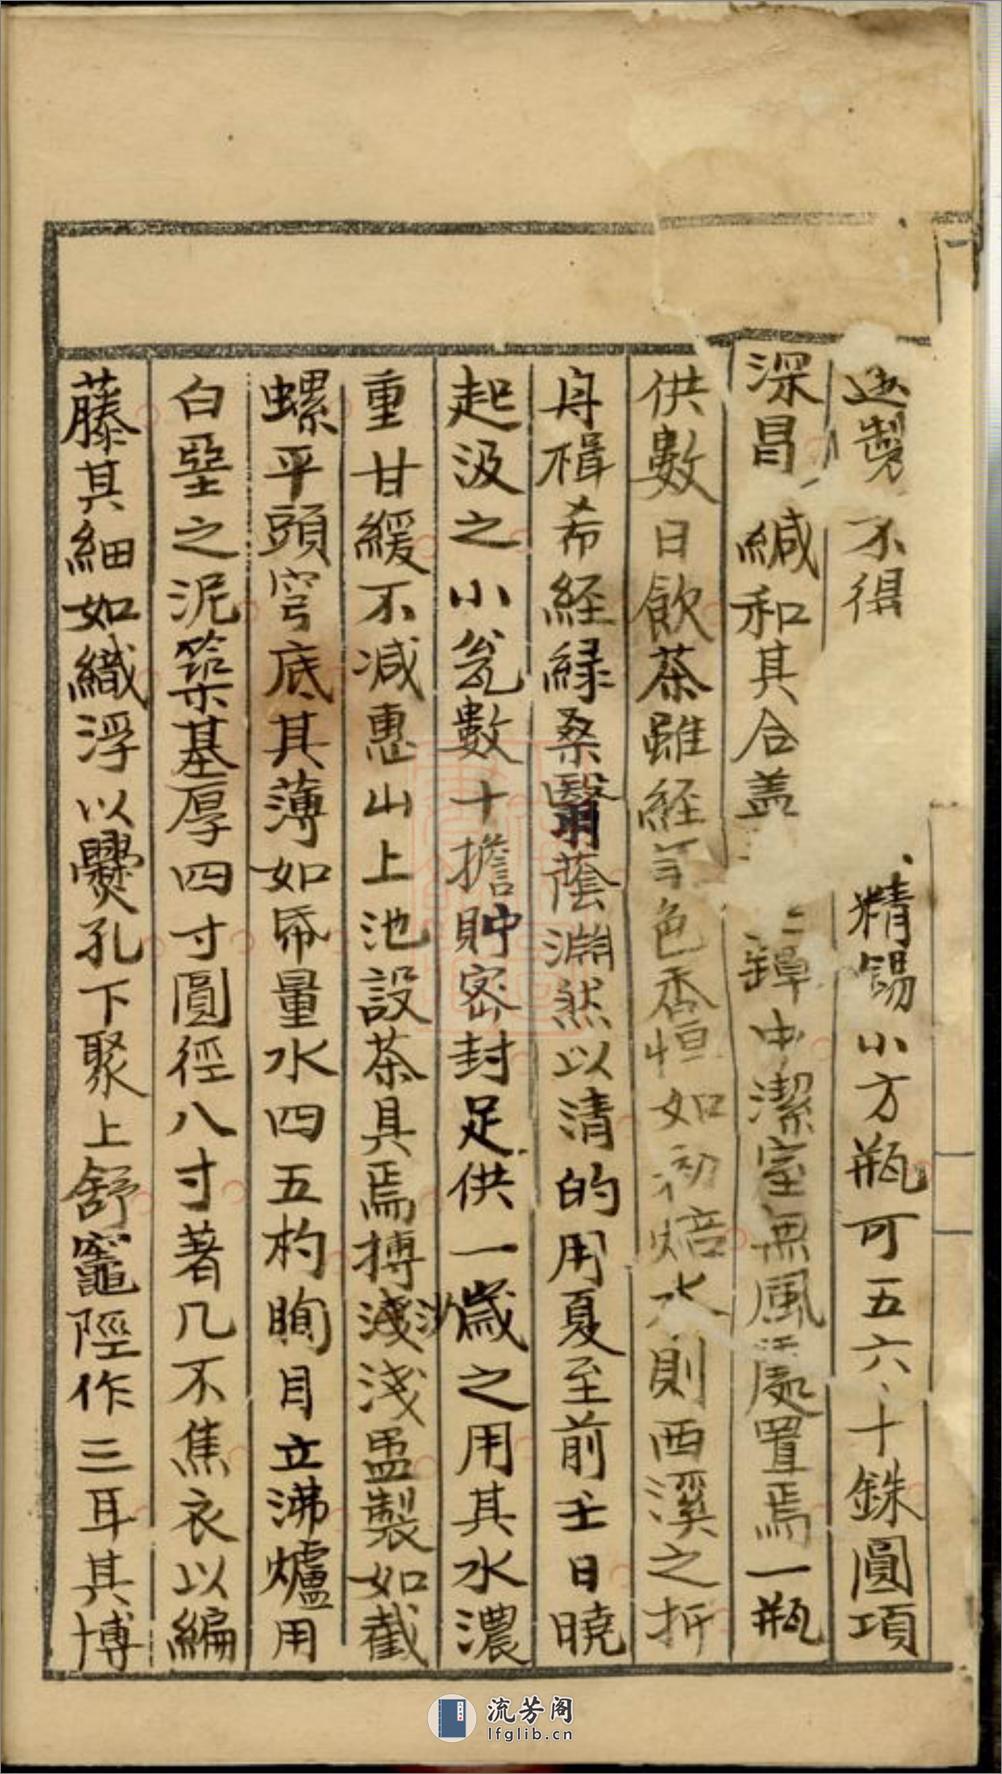 製不得精錫小方瓶可五六十銖圓項
深昌緘和其合盖鐔中潔室無風處置焉一瓶
供數日飲茶雖経年色香恒如初焙水則西溪之折
舟楫希経緑桑翳蔭淵然以清的用夏至前壬日曉
起汲之小瓮數十擔貯密封足供一歲之用其水濃
重甘緩不減惠山上池設茶具焉摶淺沙淺盂製如截
螺平頭穹底其薄如帋量水四五杓眴目立沸爐用
白堊之泥築基厚四寸圓徑八寸著几不焦衣以編
藤其細如織浮以爨孔下聚上舒竈陘作三耳其博
流芳阁
lfglib.cn